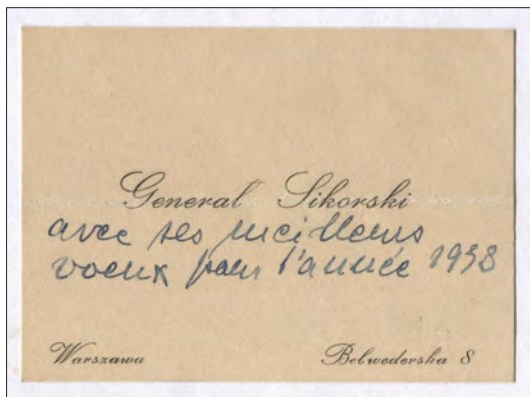 General Sikorski
avec ses meilleurs
voeux pour l'année 1938
Warszawa
Belwederska 8